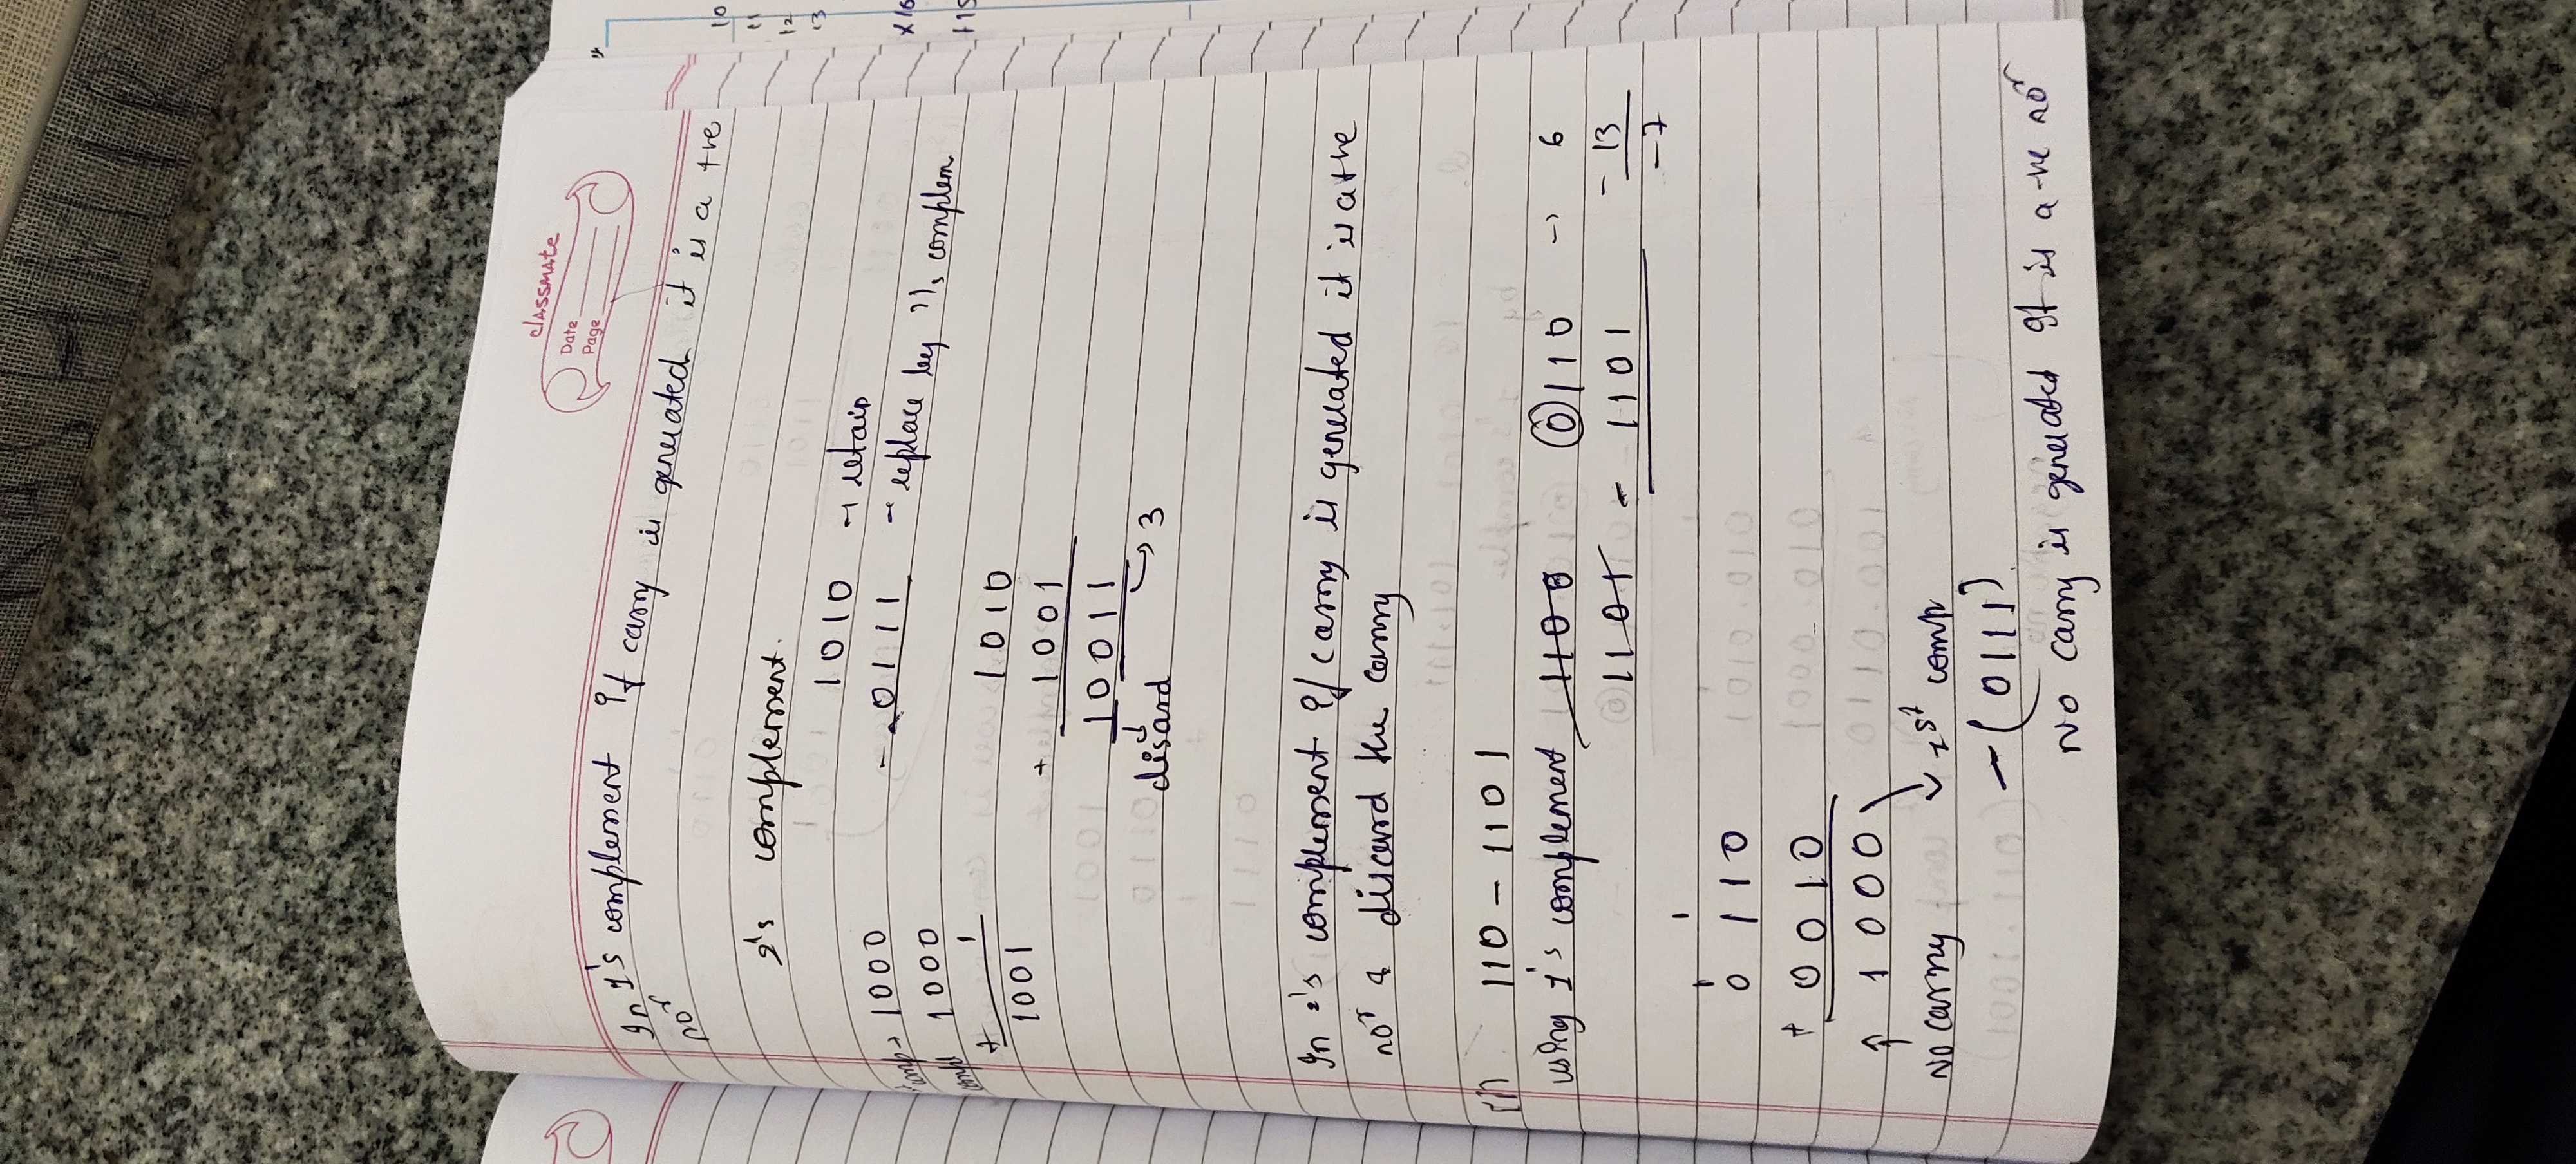 NASHTTR
classmate
Date
Page
In 1's complement if carry is generated it is a +ve
nor
2's complement.
1010 → retain
comp → 1000
- 0111 - replace by 1's complem
compl 1000
+ 1
1001
1010
+ 1001
10011
disard → 3
In 2's complement if carry is generated it is a +ve
nor & discard the carry
110 - 1101
using 1's complement 1100 0110 → 6
1101 - 1101 - 13
-7
1 1
0 110
+ 0010
↑ 1000
No carry 1st comp
-(0111)
No carry is generated It is a -ve nor
10
11
12
13
x 10
+15